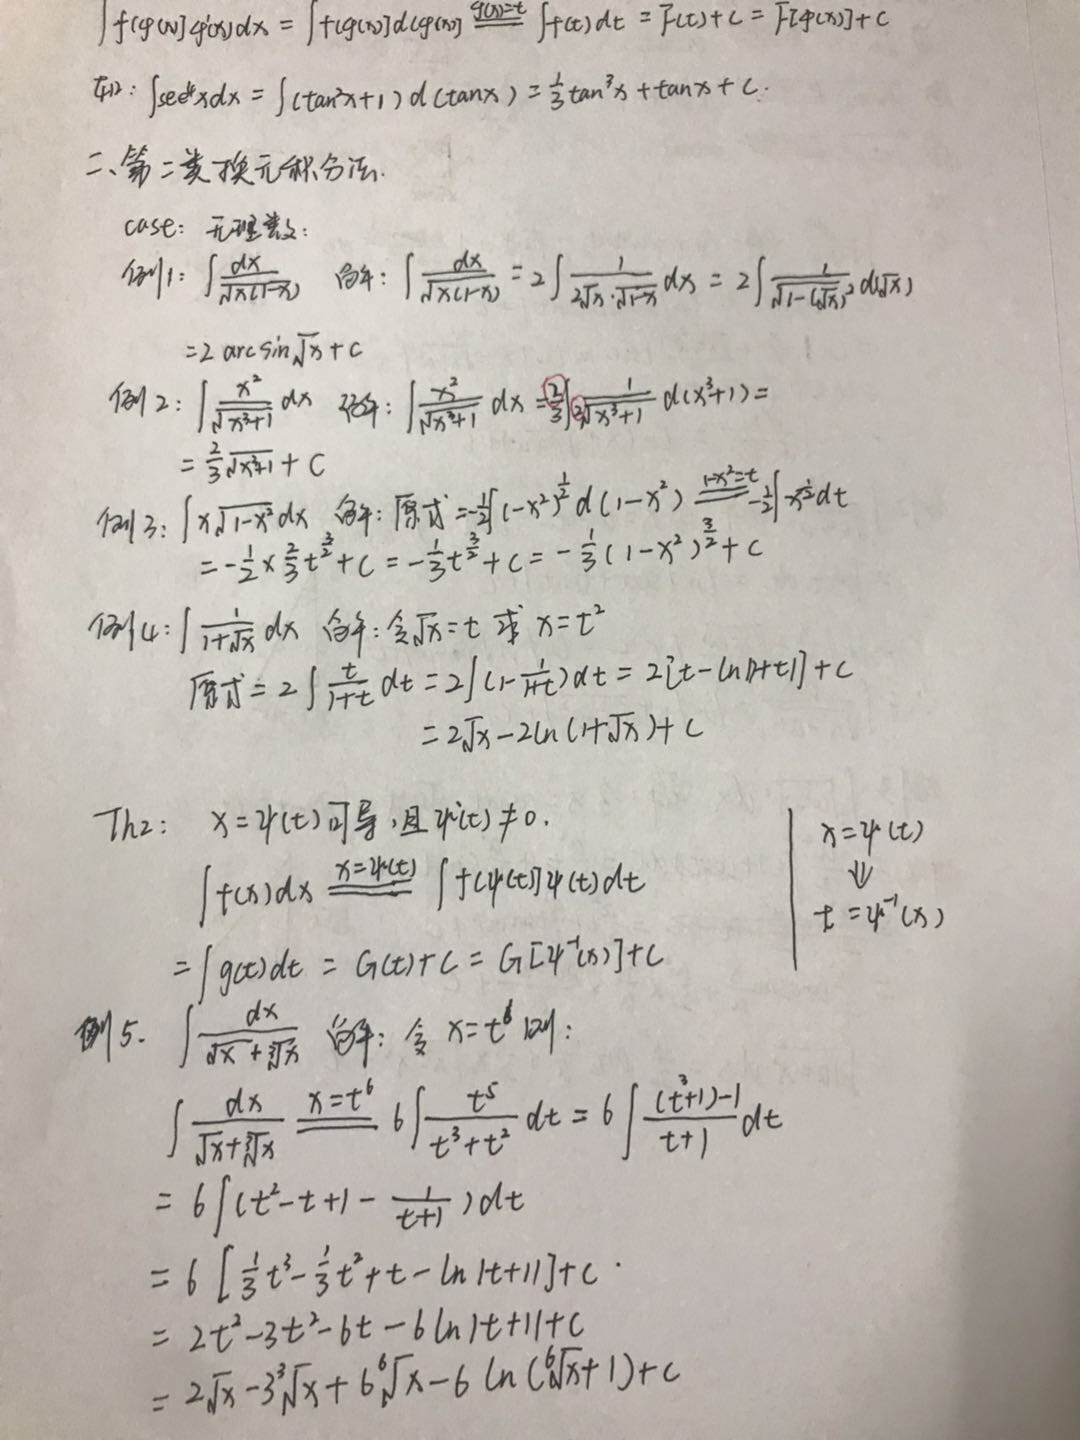 ∫f[φ(x)]φ'(x)dx = ∫f[φ(x)]dφ(x) φ(x)=t ∫f(t)dt = F(t)+C = F[φ(x)]+C
∫sec⁴xdx = ∫(tan²x+1)d(tanx) = 1/3 tan³x+tanx+C.
二、第二类换元积分法.
case: 无理数:
例1: ∫dx/√x(1-x) 解: ∫dx/√x(1-x) = 2∫1/(2√x·√1-x) dx = 2∫1/√(1-(√x)²) d(√x)
=2 arcsin√x+C
例2: ∫x²/√(x³+1) dx 解: ∫x²/√(x³+1) dx = 2/3∫1/(2√(x³+1)) d(x³+1) =
= 2/3 √(x³+1) + C
例3: ∫x√(1-x²)dx 解: 原式=-1/2∫(-x²)^(1/2) d(1-x²) 1-x²=t -1/2∫x^(1/2)dt
= -1/2 × 2/3 t^(3/2)+C = -1/3 t^(3/2)+C = -1/3(1-x²)^(3/2)+C
例4: ∫1/(1+√x) dx 解: 令√x=t 求 x=t²
原式=2∫t/(1+t) dt = 2∫(1-1/(1+t))dt = 2[t-ln|1+t|]+C
= 2√x-2ln(1+√x)+C
Th2: x=ψ(t)可导,且ψ'(t)≠0.
x=ψ(t)
∫f(x)dx x=ψ(t) ∫f[ψ(t)]ψ(t)dt
⇓
t=ψ⁻¹(x)
=∫g(t)dt = G(t)+C = G[ψ⁻¹(x)]+C
例5. ∫dx/(√x+∛x) 解: 令 x=t⁶ 则:
∫dx/(√x+∛x) x=t⁶ 6∫t⁵/(t³+t²) dt = 6∫((t³+1)-1)/(t+1) dt
= 6∫(t²-t+1-1/(t+1))dt
= 6[1/3 t³-1/3 t²+t-ln|t+1|]+C.
= 2t²-3t²-6t-6ln|t+1|+C
= 2√x-3∛x+6⁶√x-6 ln(⁶√x+1)+C